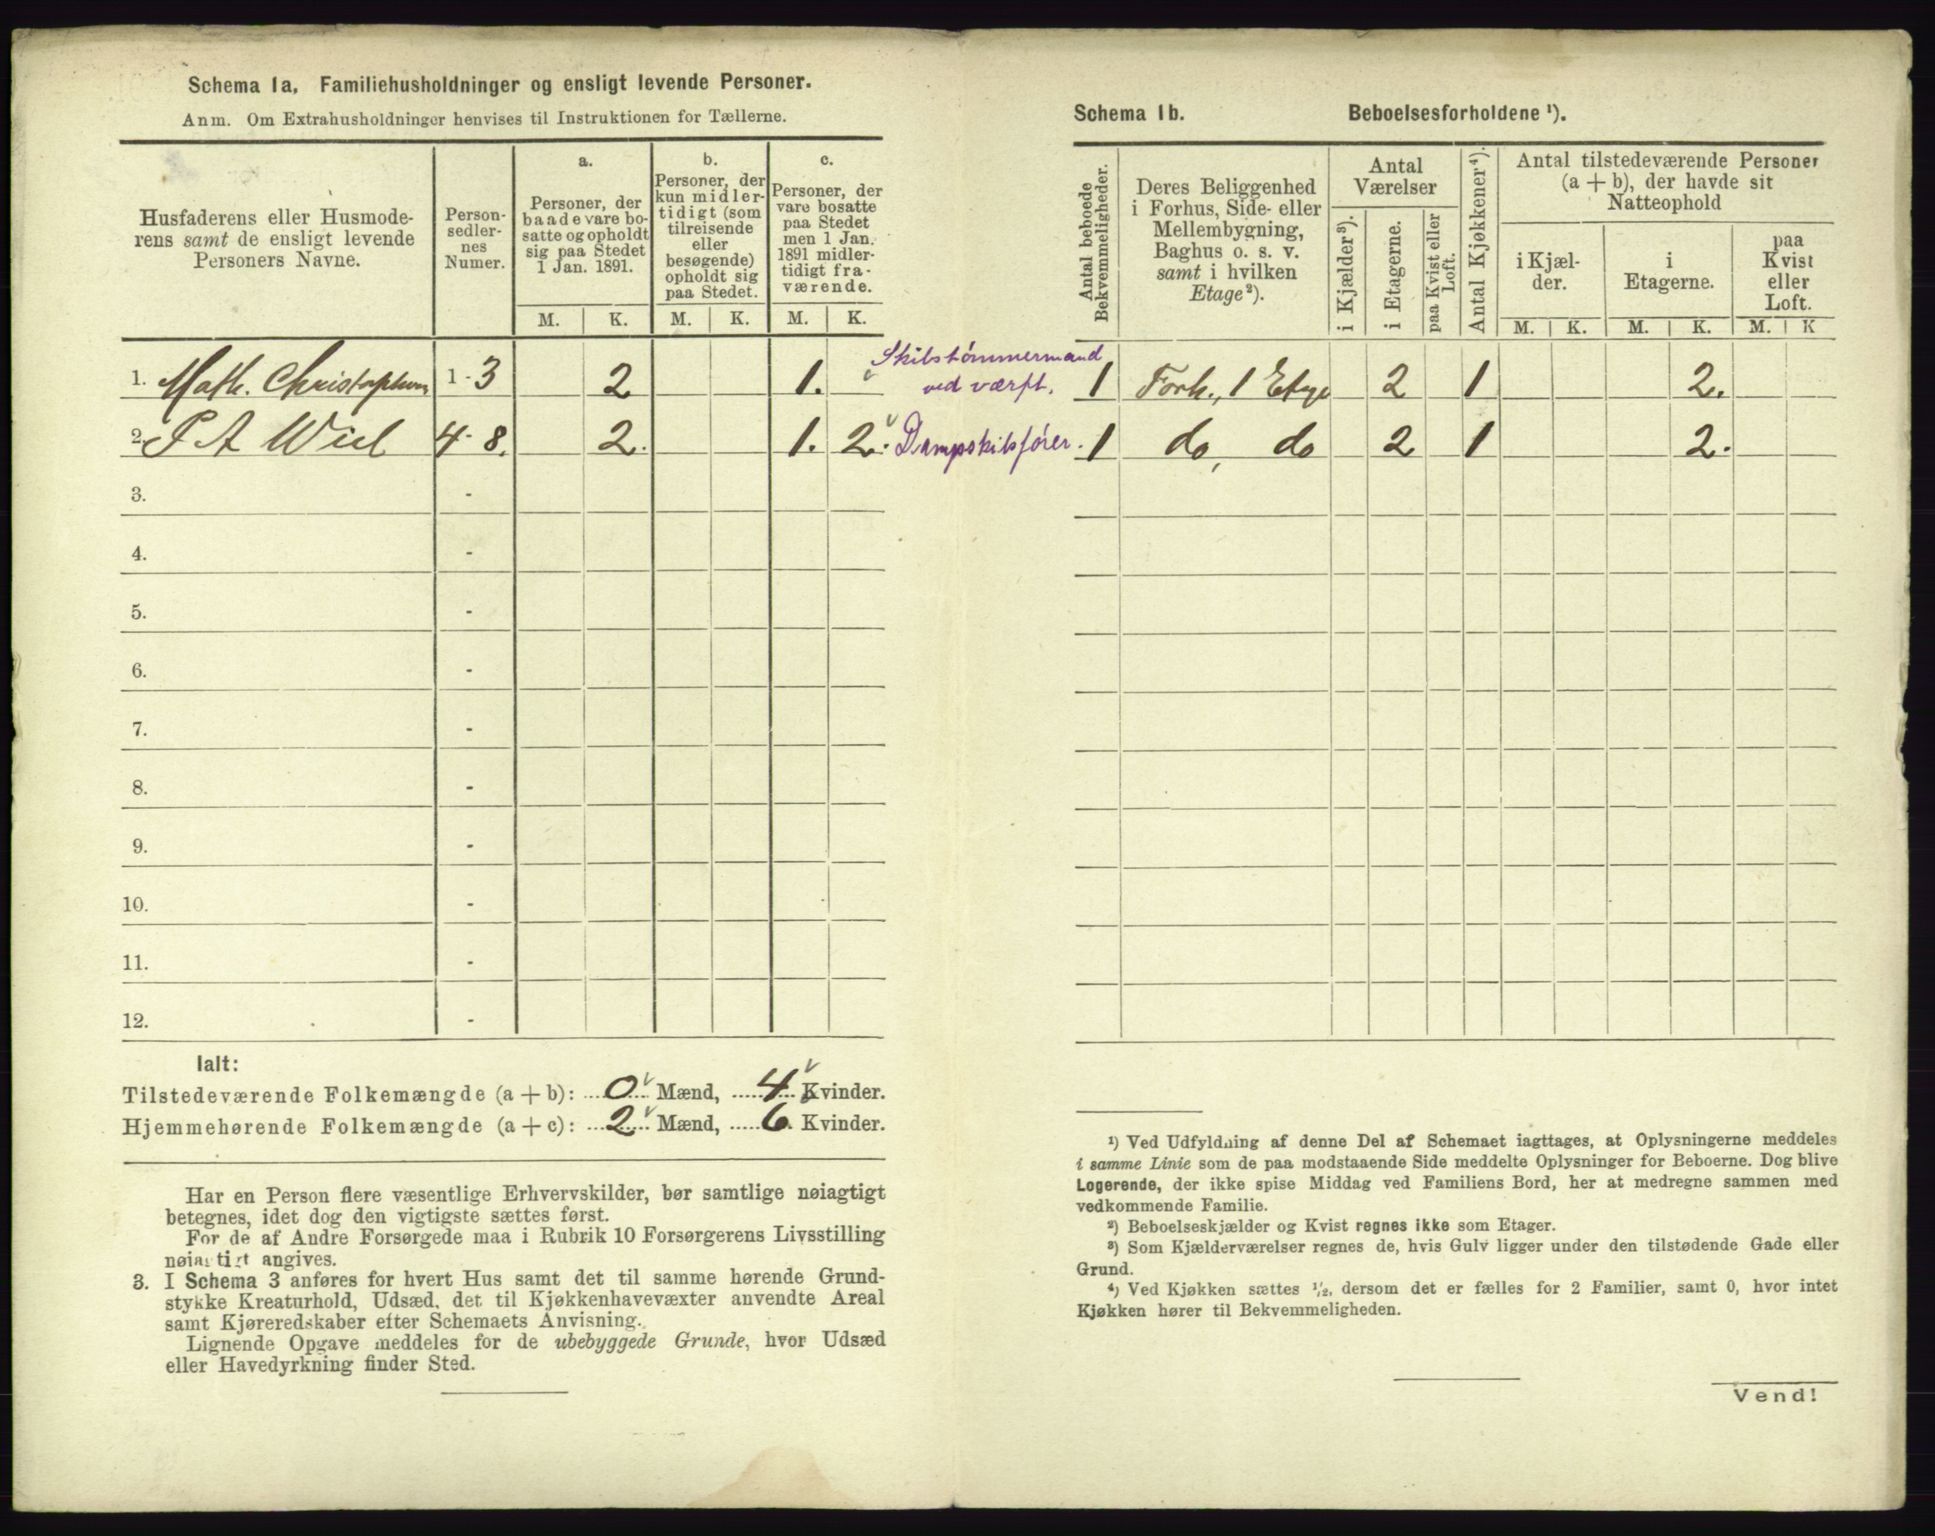 Schema 1a. Familiehusholdninger og ensligt levende Personer.
Anm. Om Extrahusholdninger henvises til Instruktionen for Tællerne.
Husfaderens eller Husmode-
rens samt de ensligt levende
Personers Navne.
Person-
sedler-
nes
Numer.
a.
Personer, der
baade vare bo-
satte og opholdt
sig paa Stedet
1 Jan. 1891.
b.
Personer, der
kun midler-
tidigt (som
tilreisende
eller
besøgende)
opholdt sig
paa Stedet.
c.
Personer, der
vare bosatte
paa Stedet
men 1 Jan.
1891 midler-
tidigt fra-
værende.
M. K. M. K. M. K.
1. Math. Christophersen 1 - 3 2 1. Skibstømmermand
ved værft.
2. P A Wiel 4 - 8. 2. 1. 2. Dampskibsfører.
3. -
4. -
5. -
6. -
7. -
8. -
9. -
10. -
11. -
12. -
Ialt:
Tilstedeværende Folkemængde (a + b): 0 Mænd, 4 Kvinder.
Hjemmehørende Folkemængde (a + c): 2 Mænd, 6 Kvinder.
Har en Person flere væsentlige Erhvervskilder, bør samtlige nøiagtigt
betegnes, idet dog den vigtigste sættes først.
For de af Andre Forsørgede maa i Rubrik 10 Forsørgerens Livsstilling
nøiagtigt angives.
3. I Schema 3 anføres for hvert Hus samt det til samme hørende Grund-
stykke Kreaturhold, Udsæd, det til Kjøkkenhavevæxter anvendte Areal
samt Kjøreredskaber efter Schemaets Anvisning.
Lignende Opgave meddeles for de ubebyggede Grunde, hvor Udsæd
eller Havedyrkning finder Sted.
Schema 1b. Beboelsesforholdene ¹).
Antal beboede
Bekvemmeligheder.
Deres Beliggenhed
i Forhus, Side- eller
Mellembygning,
Baghus o. s. v.
samt i hvilken
Etage²).
Antal
Værelser
i Kjælder³).
i Etagerne.
paa Kvist eller
Loft.
Antal Kjøkkener⁴).
Antal tilstedeværende Personer
(a + b), der havde sit
Natteophold
i Kjæl-
der.
i
Etagerne.
paa
Kvist
eller
Loft.
M. K. M. K. M. K
1 Forh., 1 Etage 2 1 2.
1 do, do 2 1 2.
¹) Ved Udfyldning af denne Del af Schemaet iagttages, at Oplysningerne meddeles
i samme Linie som de paa modstaaende Side meddelte Oplysninger for Beboerne. Dog blive
Logerende, der ikke spise Middag ved Familiens Bord, her at medregne sammen med
vedkommende Familie.
²) Beboelseskjælder og Kvist regnes ikke som Etager.
³) Som Kjælderværelser regnes de, hvis Gulv ligger under den tilstødende Gade eller
Grund.
⁴) Ved Kjøkken sættes ½, dersom det er fælles for 2 Familier, samt 0, hvor intet
Kjøkken hører til Bekvemmeligheden.
Vend!